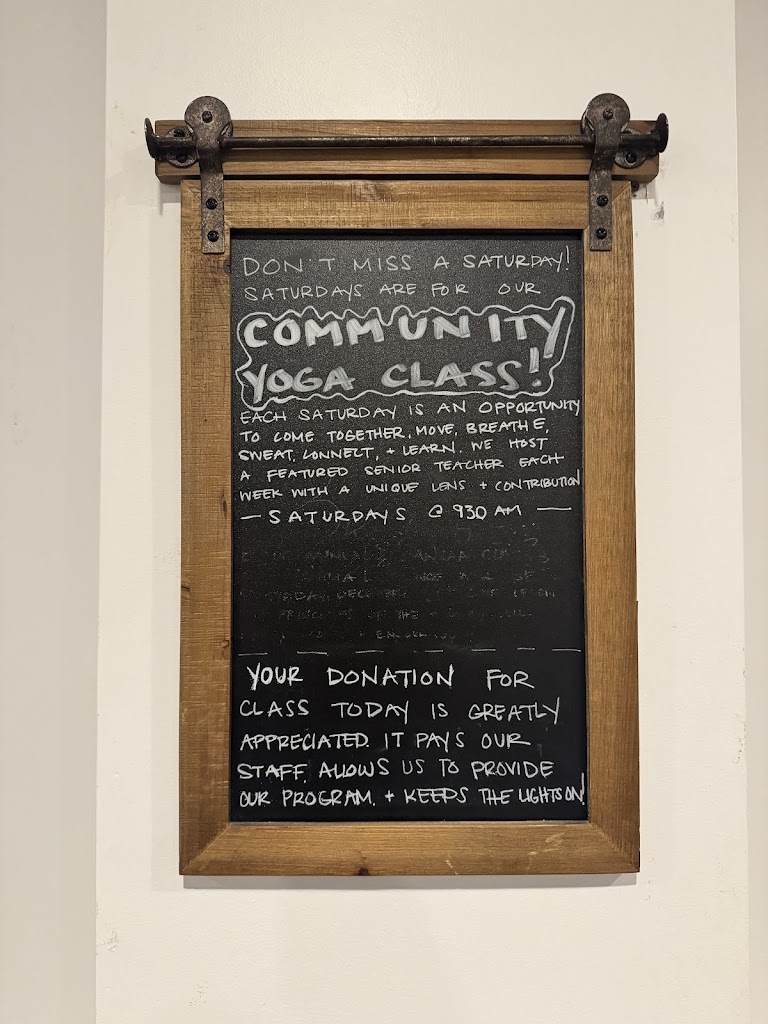 DON'T MISS A SATURDAY!
SATURDAYS ARE FOR OUR
COMMUNITY
YOGA CLASS!
EACH SATURDAY IS AN OPPORTUNITY
TO COME TOGETHER, MOVE, BREATHE,
SWEAT, CONNECT, + LEARN. WE HOST
A FEATURED SENIOR TEACHER EACH
WEEK WITH A UNIQUE LENS + CONTRIBUTION
— SATURDAYS @ 930 AM —
OF THE
YOUR DONATION FOR
CLASS TODAY IS GREATLY
APPRECIATED. IT PAYS OUR
STAFF, ALLOWS US TO PROVIDE
OUR PROGRAM, + KEEPS THE LIGHTS ON!